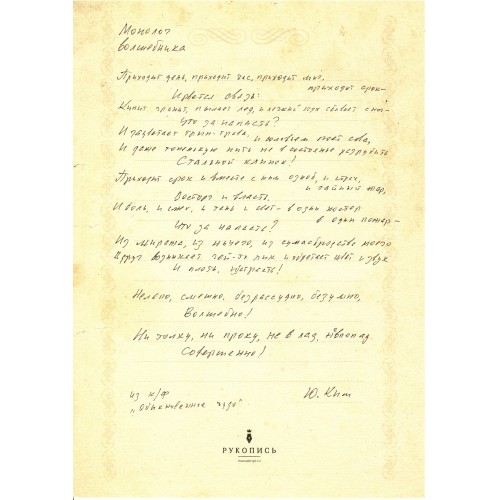 Монолог
волшебника
Приходит день, приходит час, приходит миг,
приходит срок –
И рвётся связь:
Кипит гранит, пылает лёд, и лёгкий пух сбивает с ног –
Что за напасть?
И зацветает трын-трава, и соловьём поёт сова,
И даже тоненькую нить не в состоянье разрубить
Стальной клинок!
Приходит срок и вместе с ним озноб, и страх,
и тайный жар,
Восторг и власть.
И боль, и смех, и тень и свет – в один костёр
в один пожар –
Что за напасть?
Из миража, из ничего, из сумасбродства моего
Вдруг возникает чей-то лик и обретает цвет и звук
И плоть, и страсть!
Нелепо, смешно, безрассудно, безумно,
Волшебно!
Ни толку, ни проку, не в лад, невпопад
Совершенно!
из к/ф
"Обыкновенное чудо"
Ю. Ким
РУКОПИСЬ